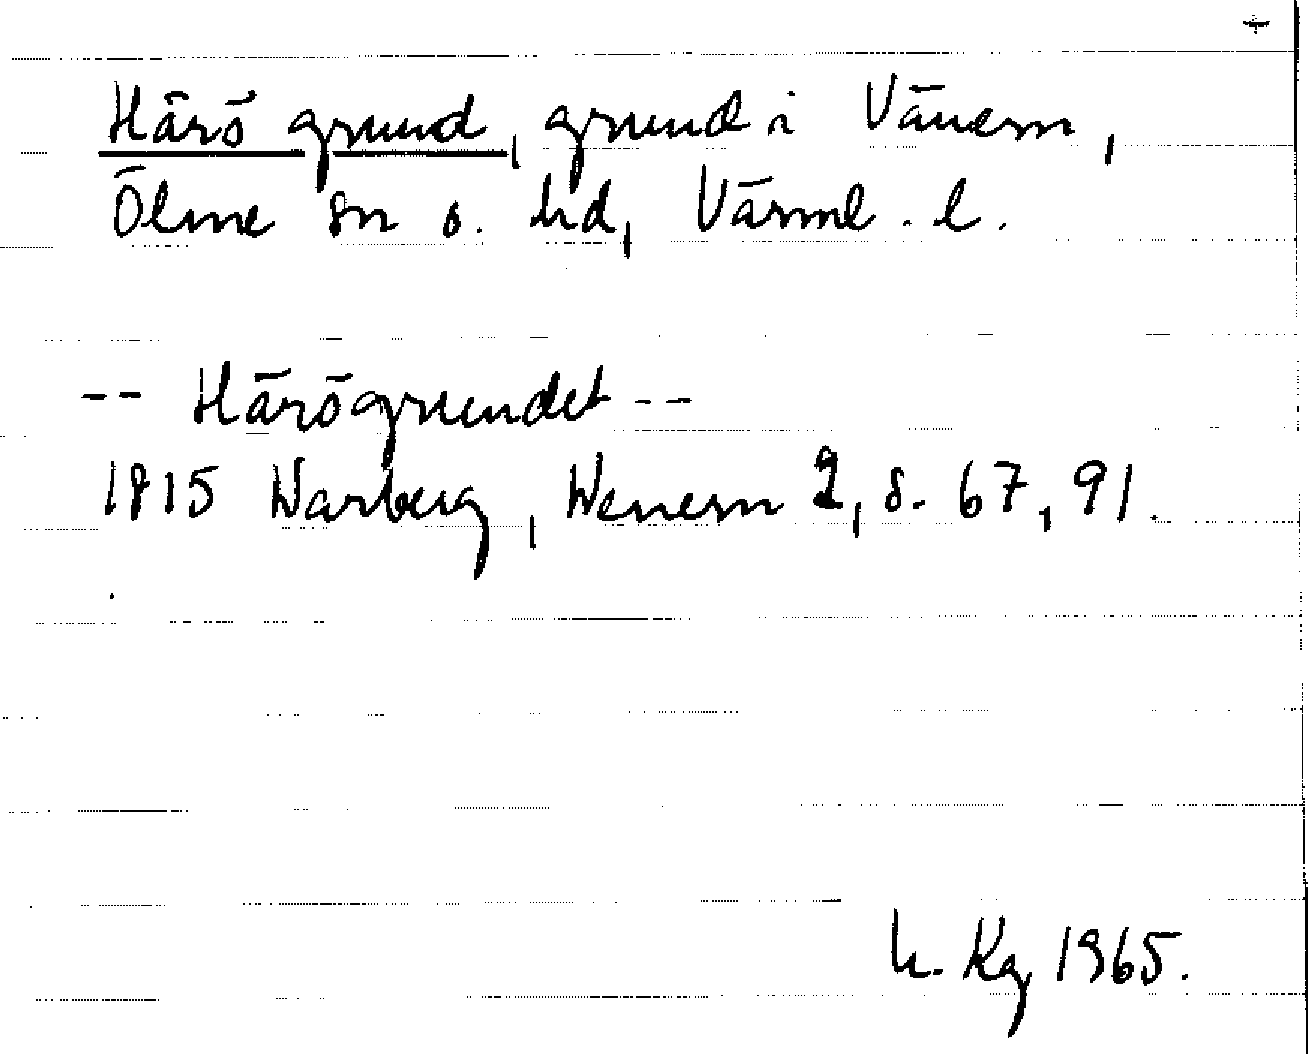 Härö grund, grund i Vänern,
Ölme sn o. hd, Värml. l.
-- Härögrundet --
1815 Warberg, Wenern 2, s. 67, 91.
h. Kg 1965.